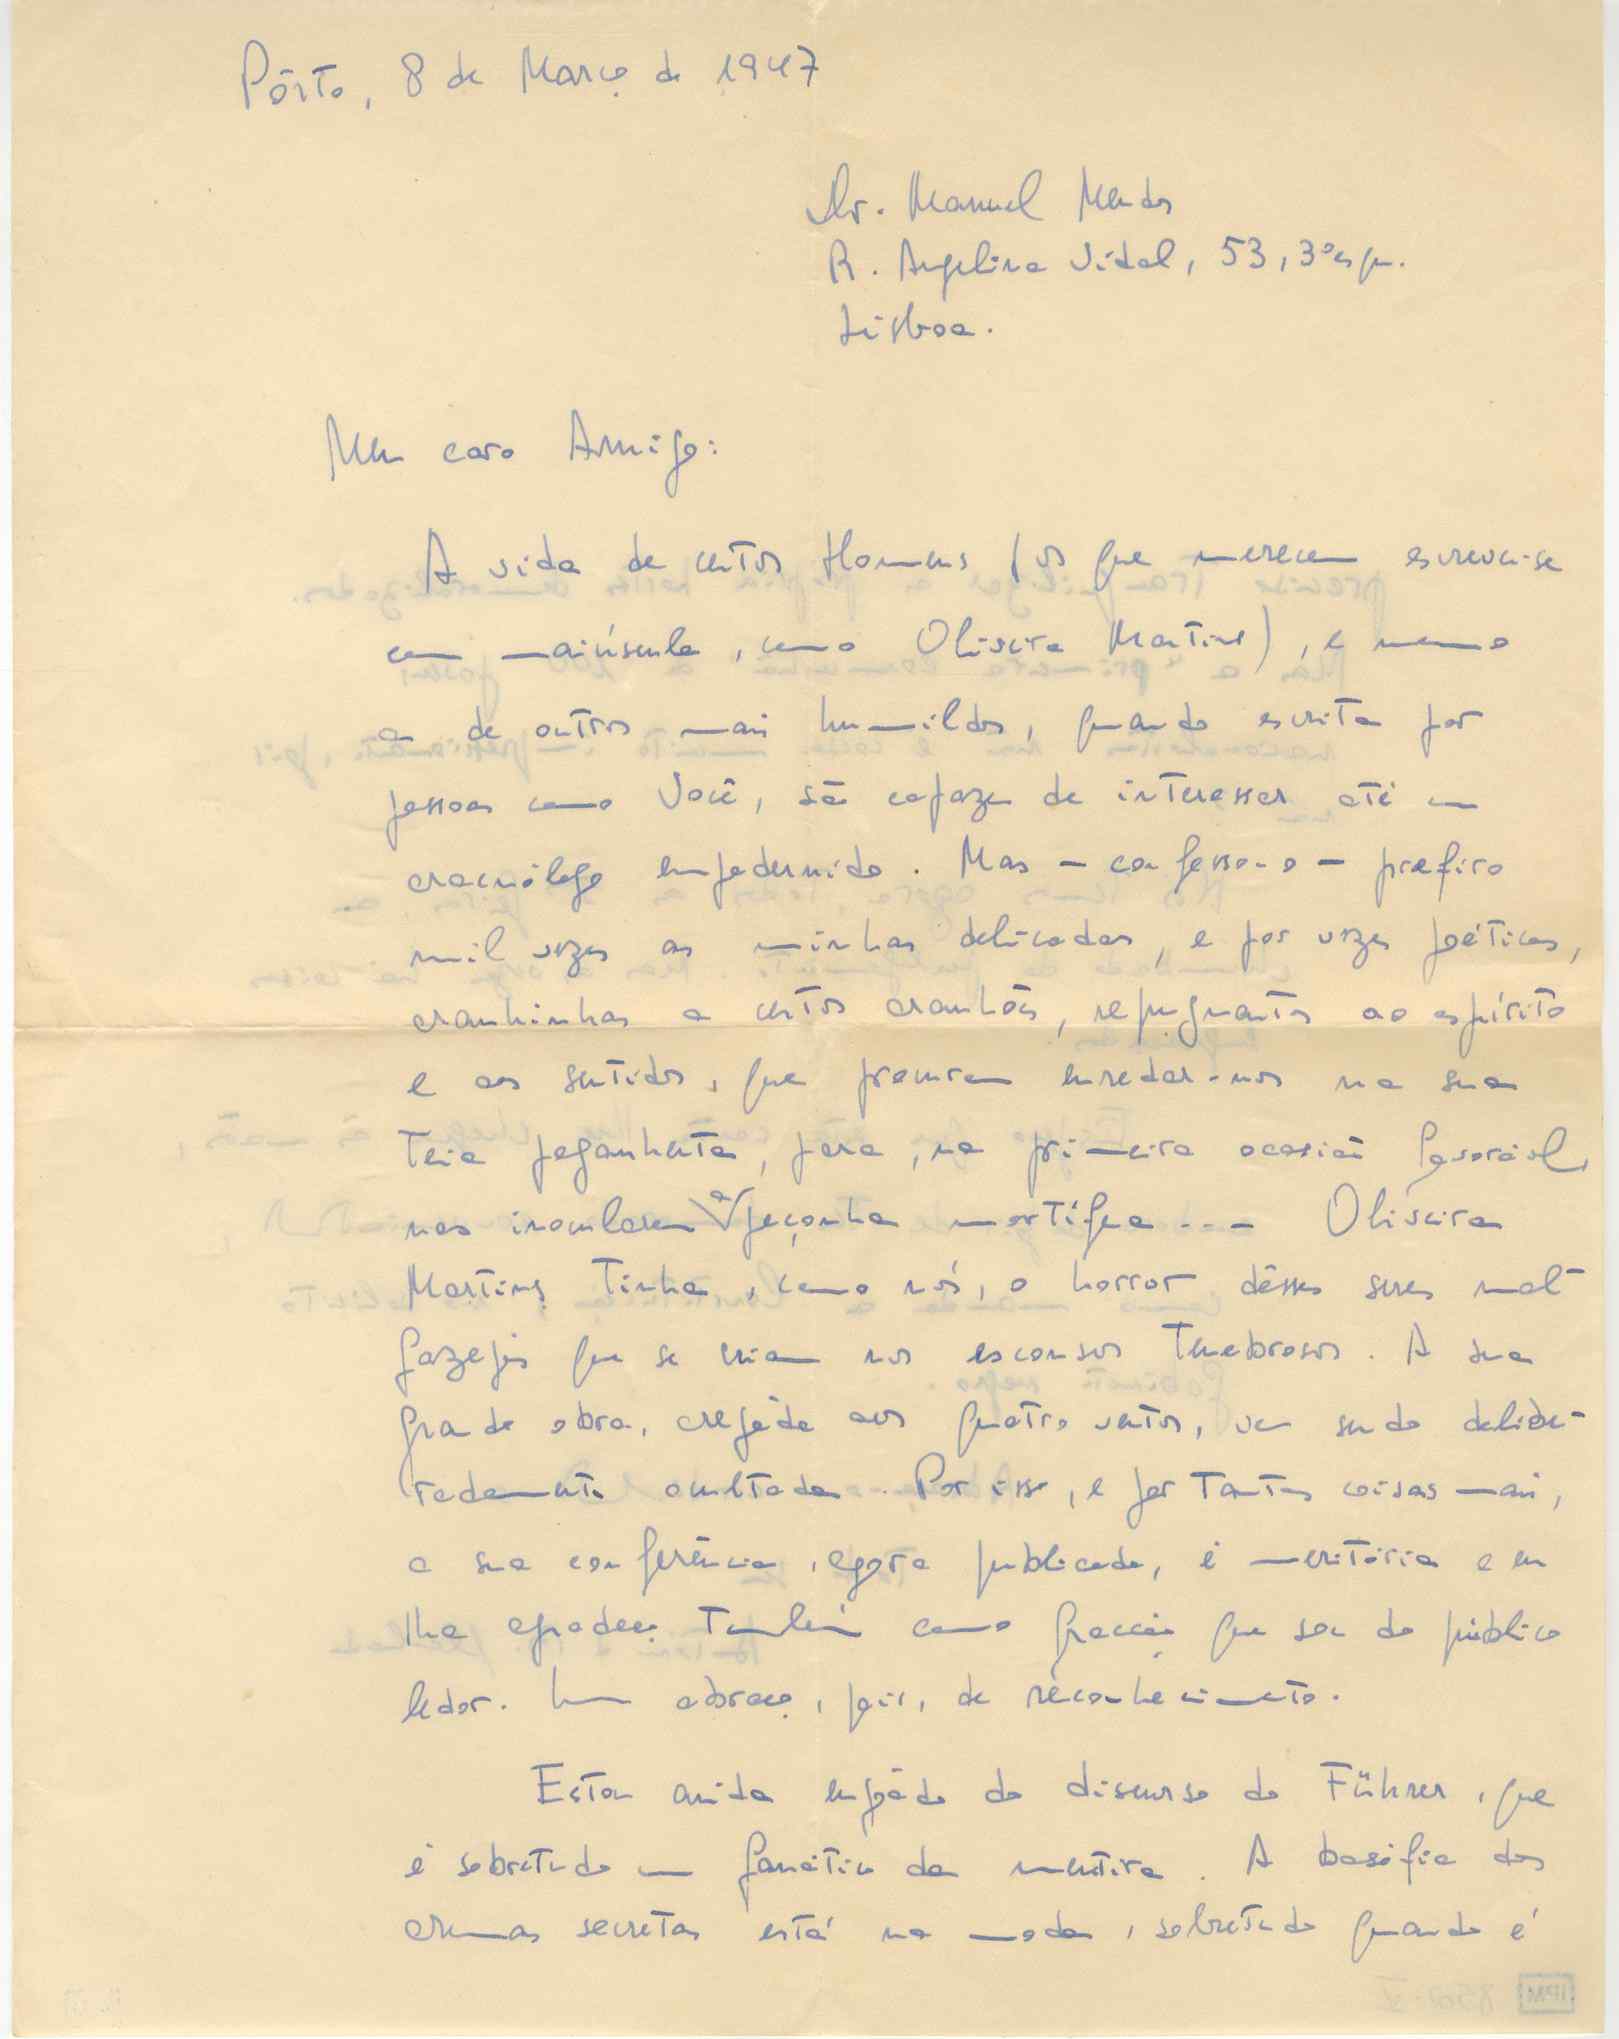 Pôrto, 8 de Março de 1947
Dr. Manuel Mendes
R. Angelina Vidal, 53, 3º esq.
Lisboa.
Meu caro Amigo:
A vida de certos Homens (os que merecem escrever-se
com maiúscula, como Oliveira Martins), e mesmo
a de outros mais humildes, quando escrita por
pessoas como Você, são capazes de interessar até um
aracnólogo empedernido. Mas - confesso-o - prefiro
mil vezes as minhas delicadas, e por vezes poéticas,
aranhinhas a certos aranhões, repugnantes ao espírito
e aos sentidos, que procuram enredar-nos na sua
teia peganhenta, para, na primeira ocasião favorável,
nos inocularem a peçonha mortífera... Oliveira
Martins tinha, como nós, o horror dêsses seres mal-
fazejos que se criam nos esconsos tenebrosos. A sua
grande obra, arejada aos quatro ventos, vem sendo delibe-
radamente ocultada. Por isso, e por tantas coisas mais,
a sua conferência, agora publicada, é meritória e eu
lha agradeço também como fracção que sou do público
ledor. Um abraço, pois, de reconhecimento.
Estou ainda engasgado do discurso do Führer, que
é sobretudo um fanático da mentira. A basófia das
armas secretas está na moda, sobretudo quando é